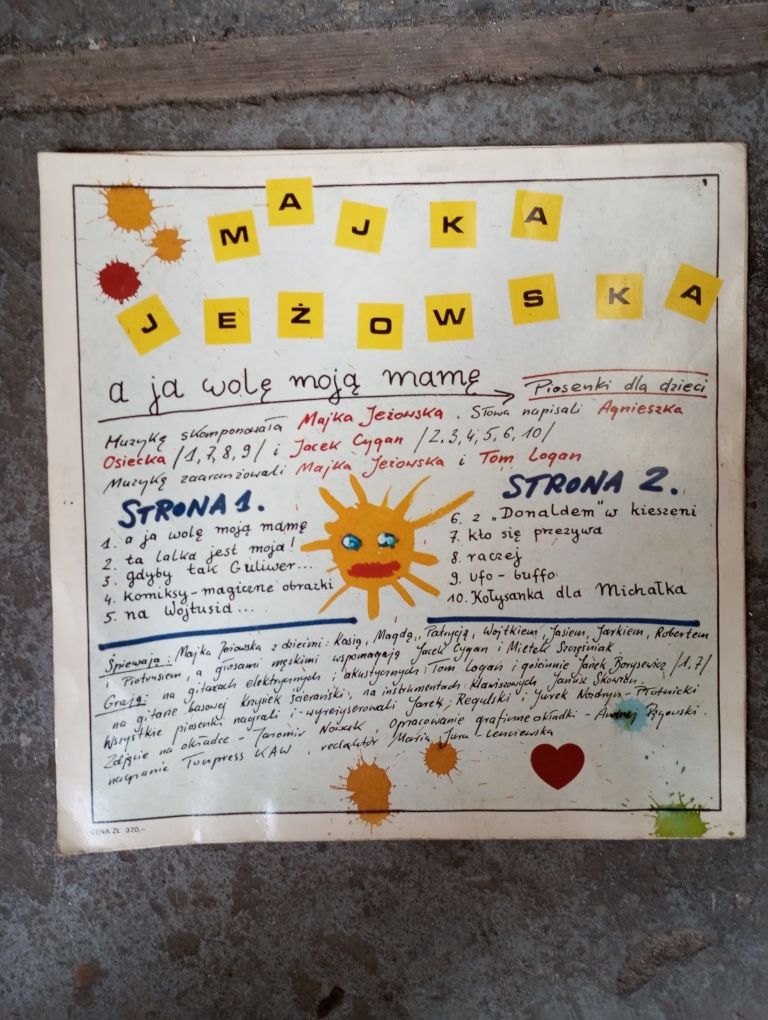 MAJKA
JEŻOWSKA
a ja wolę moją mamę
Piosenki dla dzieci
Muzykę skomponowała Majka Jeżowska. Słowa napisali Agnieszka
Osiecka /1,7,8,9/ i Jacek Cygan /2,3,4,5,6,10/
Muzykę zaaranżowali Majka Jeżowska i Tom Logan
STRONA 1.
1. a ja wolę moją mamę
2. ta lalka jest moja!
3. gdyby tak Guliwer...
4. komiksy-magiczne obrazki
5. na Wojtusia...
STRONA 2.
6. z „Donaldem" w kieszeni
7. kto się przezywa
8. raczej
9. ufo-buffo
10. Kołysanka dla Michałka
Śpiewają: Majka Jeżowska z dziećmi: Kasią, Magdą, Patrycją, Wojtkiem, Jasiem, Jarkiem, Robertem
i Piotrusiem, a głosami męskimi wspomagają Jacek Cygan i Mietek Szcześniak
Grają: na gitarach elektrycznych i akustycznych Tom Logan i gościnnie Janek Borysewicz /1,7/
na gitarze basowej Krzysiek Ścierański, na instrumentach klawiszowych Janusz Skowron.
Wszystkie piosenki nagrali i wyreżyserowali Jarek Regulski i Jurek Płotnicki
Zdjęcie na okładce - Jaromir Nowak Opracowanie graficzne okładki - Andrzej
nagranie Tonpress KAW, redaktor Maria
CENA ZŁ 320,-